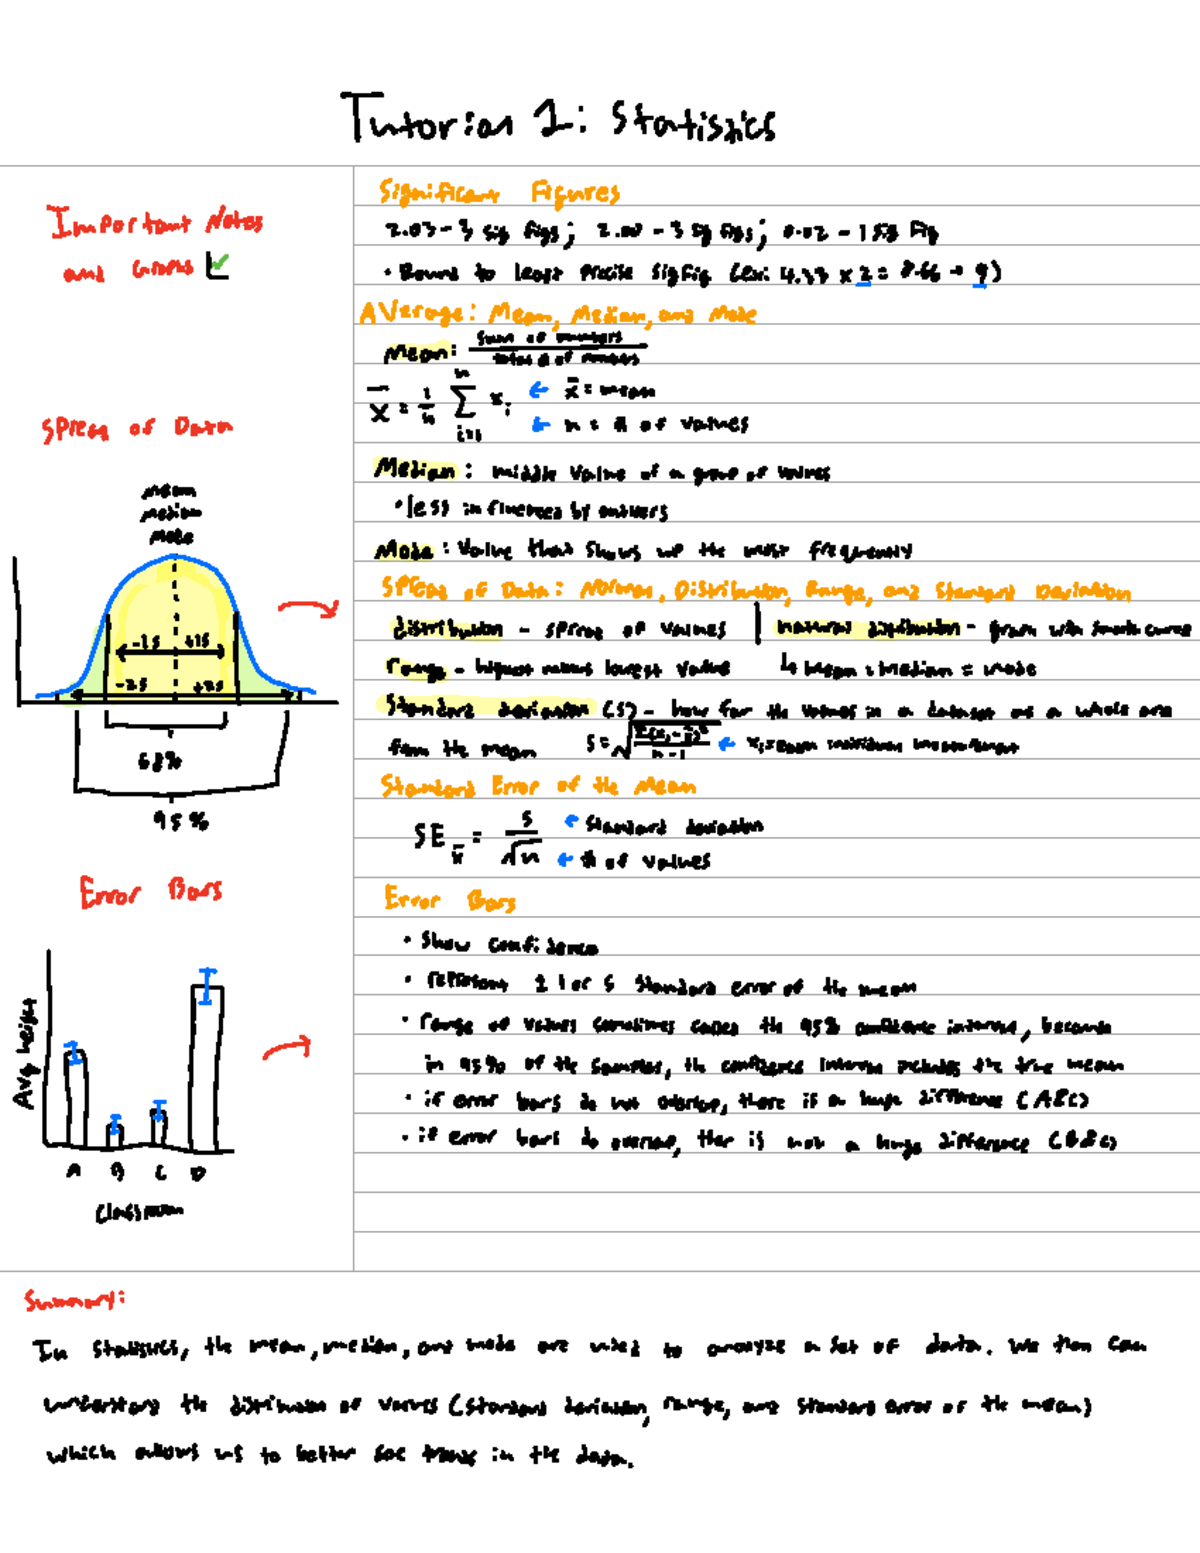 Tutorial 1: Statistics
Important Notes
and Graphs
Significant Figures
2.03 - 3 sig figs; 2.00 - 3 sig figs; 0.02 - 1 sig fig
• Round to least precise sig fig (ex: 4.33 x 2 = 8.66 → 9)
Average: Mean, Median, and Mode
Mean: sum of numbers / total # of numbers
x̄ = 1/n Σ xᵢ ← x̄ = mean
n i=1 ← n = # of values
Median: middle value of a group of values
• less influenced by outliers
Mode: Value that shows up the most frequently
Spread of Data: Normal, Distribution, Range, and Standard Deviation
distribution - spread of values | natural distribution - graph with smooth curve
range - highest minus lowest value ↳ mean = median = mode
Standard deviation (s) - how far the values in a dataset as a whole are
from the mean s = √Σ(xᵢ - x̄)² / n - 1 ← xᵢ = each individual measurement
Standard Error of the Mean
SE x̄ = s / √n ← Standard deviation
← # of values
Error Bars
• Show confidence
• represent ± 1 of s standard error of the mean
• range of values sometimes called the 95% confidence interval, because
in 95% of the samples, the confidence interval includes the true mean
• if error bars do not overlap, there is a huge difference (A&C)
• if error bars do overlap, ther is not a huge difference (B&C)
Spread of Data
Mean
Median
Mode
-1s +1s
-2s +2s
68%
95%
Error Bars
Avg height
A B C D
Classroom
Summary:
In statistics, the mean, median, and mode are used to analyze a set of data. We then can
understand the distribution of values (standard deviation, range, and standard error of the mean)
which allows us to better see trends in the data.